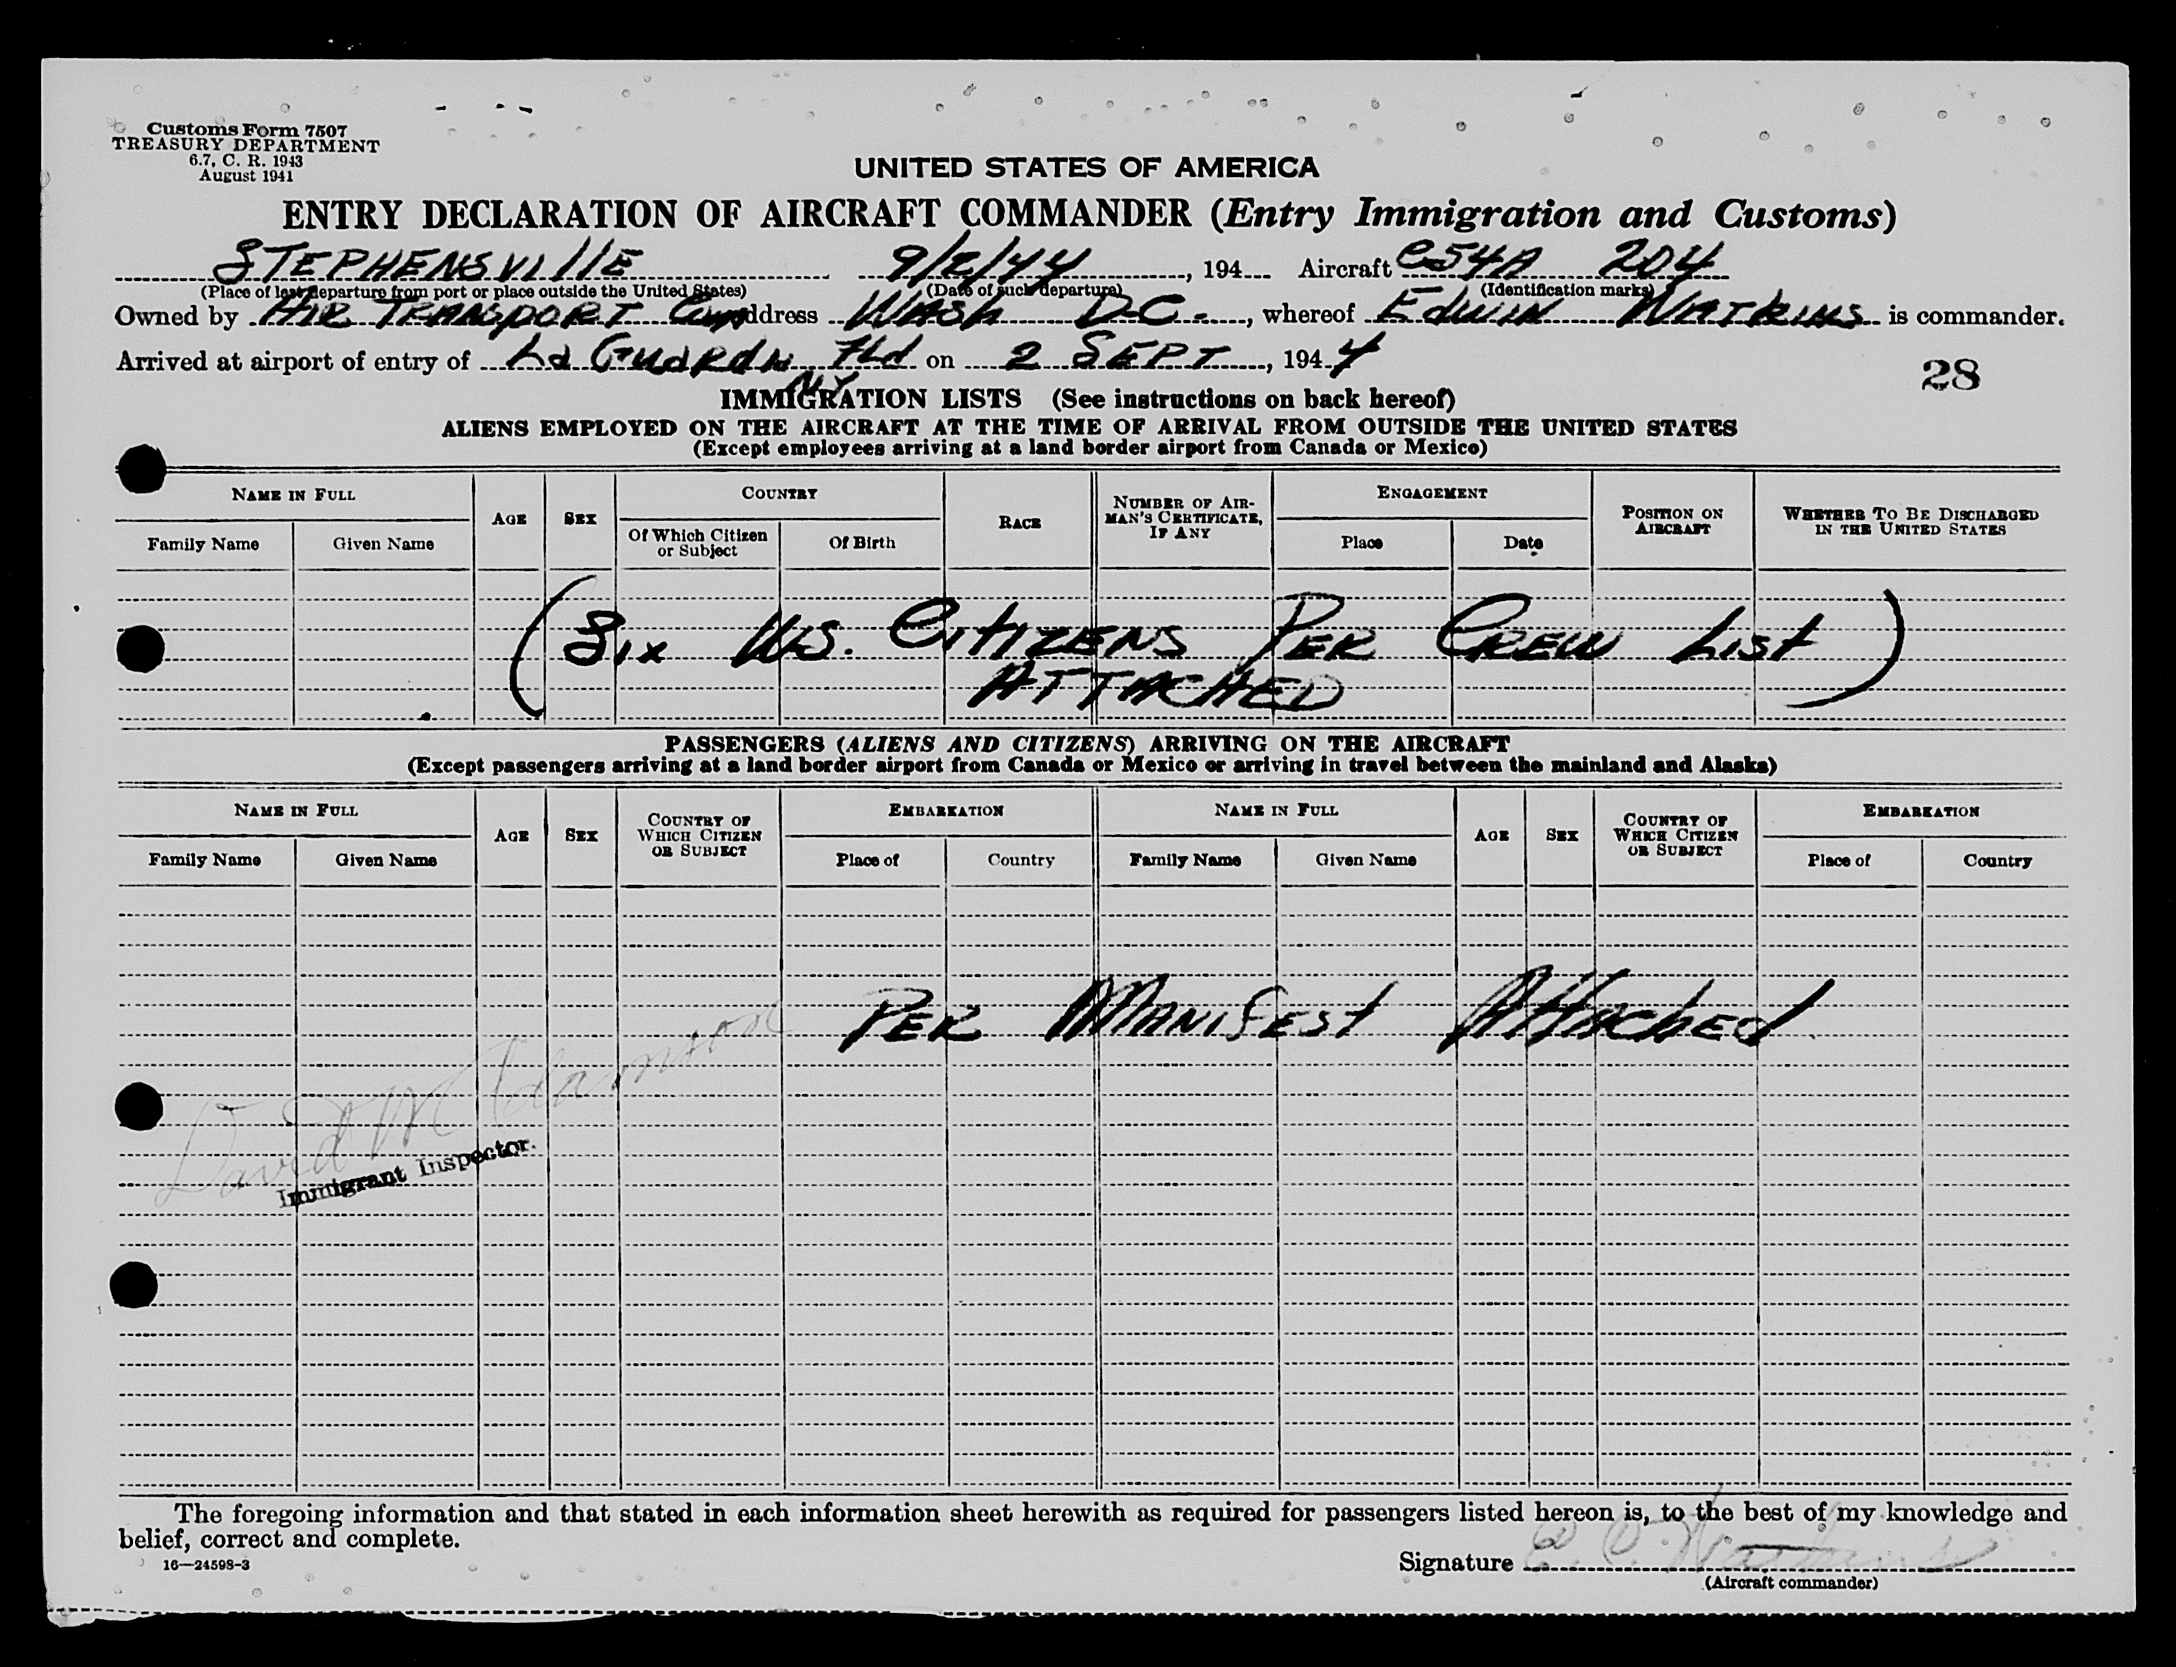 Customs Form 7507
TREASURY DEPARTMENT
6.7, C. R. 1943
August 1941
UNITED STATES OF AMERICA
ENTRY DECLARATION OF AIRCRAFT COMMANDER (Entry Immigration and Customs)
STEPHENSVIllE 9/2/44, 194 Aircraft C54A 204
(Place of last departure from port or place outside the United States) (Date of such departure) (Identification marks)
Owned by AIR TRANSPORT Com Address WASh DC., whereof Edwin WATKINS is commander.
Arrived at airport of entry of La GuARdia Fld on 2 SEPT, 1944
NY
28
IMMIGRATION LISTS (See instructions on back hereof)
ALIENS EMPLOYED ON THE AIRCRAFT AT THE TIME OF ARRIVAL FROM OUTSIDE THE UNITED STATES
(Except employees arriving at a land border airport from Canada or Mexico)
NAME IN FULL AGE SEX COUNTRY RACE NUMBER OF AIRMAN'S CERTIFICATE, IF ANY ENGAGEMENT POSITION ON AIRCRAFT WHETHER TO BE DISCHARGED IN THE UNITED STATES
Family Name Given Name Of Which Citizen or Subject Of Birth Place Date
(Six U.S. CitIZENS PER CREW List)
ATTACHED
PASSENGERS (ALIENS AND CITIZENS) ARRIVING ON THE AIRCRAFT
(Except passengers arriving at a land border airport from Canada or Mexico or arriving in travel between the mainland and Alaska)
NAME IN FULL AGE SEX COUNTRY OF WHICH CITIZEN OR SUBJECT EMBARKATION NAME IN FULL AGE SEX COUNTRY OF WHICH CITIZEN OR SUBJECT EMBARKATION
Family Name Given Name Place of Country Family Name Given Name Place of Country
PER MANifEST AttAChEd
David W Adamson
Immigrant Inspector.
The foregoing information and that stated in each information sheet herewith as required for passengers listed hereon is, to the best of my knowledge and
belief, correct and complete.
16—24598-3
Signature E. C. Watkins
(Aircraft commander)